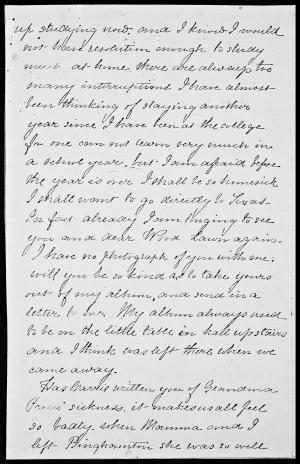 up studying now, and I know I would
not have resolution enough to study
much at home, there are always too
many interruptions. I have almost
been thinking of staying another
year since I have been at the college
for one can not learn very much in
a school year, but I am afraid before
the year is over I shall be so homesick
I shall want to go directly to
In fact already I am longing to see
you and dear Lawn again.
I have no photograph of you with me,
will you be so kind as to take yours
out of my album, and send in a
letter to me. My album always used
to be on the little table in hall upstairs
and I think was left there when we
came away.
Has Carrie written you of Grandma
sickness, it makes us all feel
so badly, when Mamma and I
left Binghamton she was so well